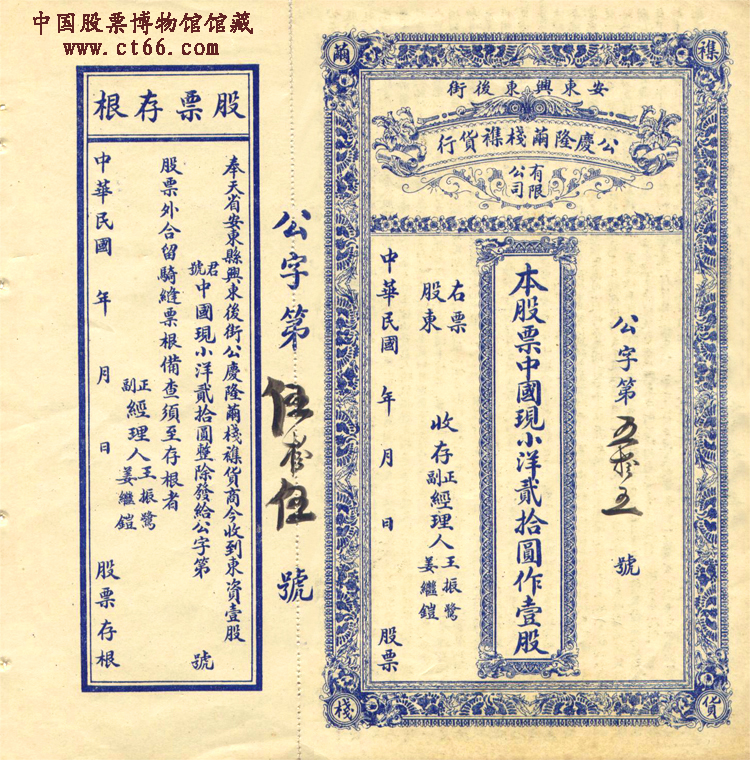 中国股票博物馆馆藏
www.ct66.com
繭
襍
貨
棧
安東興東後街
公慶隆繭棧襍貨行
有限公司
公字第五拾五號
本股票中國現小洋貳拾圓作壹股
右票股東
收存
正副經理人王振鷺姜繼鎧
中華民國 年 月 日 股票
公字第伍拾伍號
股票存根
奉天省安東縣興東後街公慶隆繭棧襍貨商今收到東資壹股
君號中國現小洋貳拾圓整除發給公字第 號
股票外合留騎縫票根備查須至存根者
正副經理人王振鷺姜繼鎧
中華民國 年 月 日 股票存根